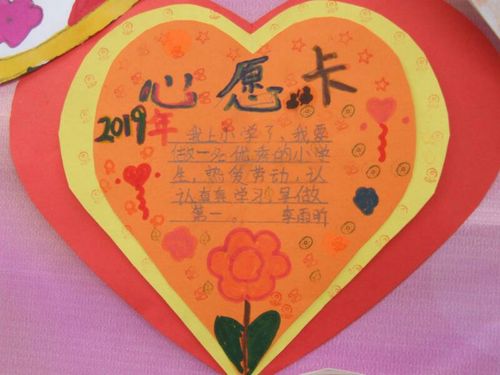 心愿卡
2019年
我上小学了、我要
做一名优秀的小学
生,热爱劳动,认
认真真学习争做
第一。 李雨昕